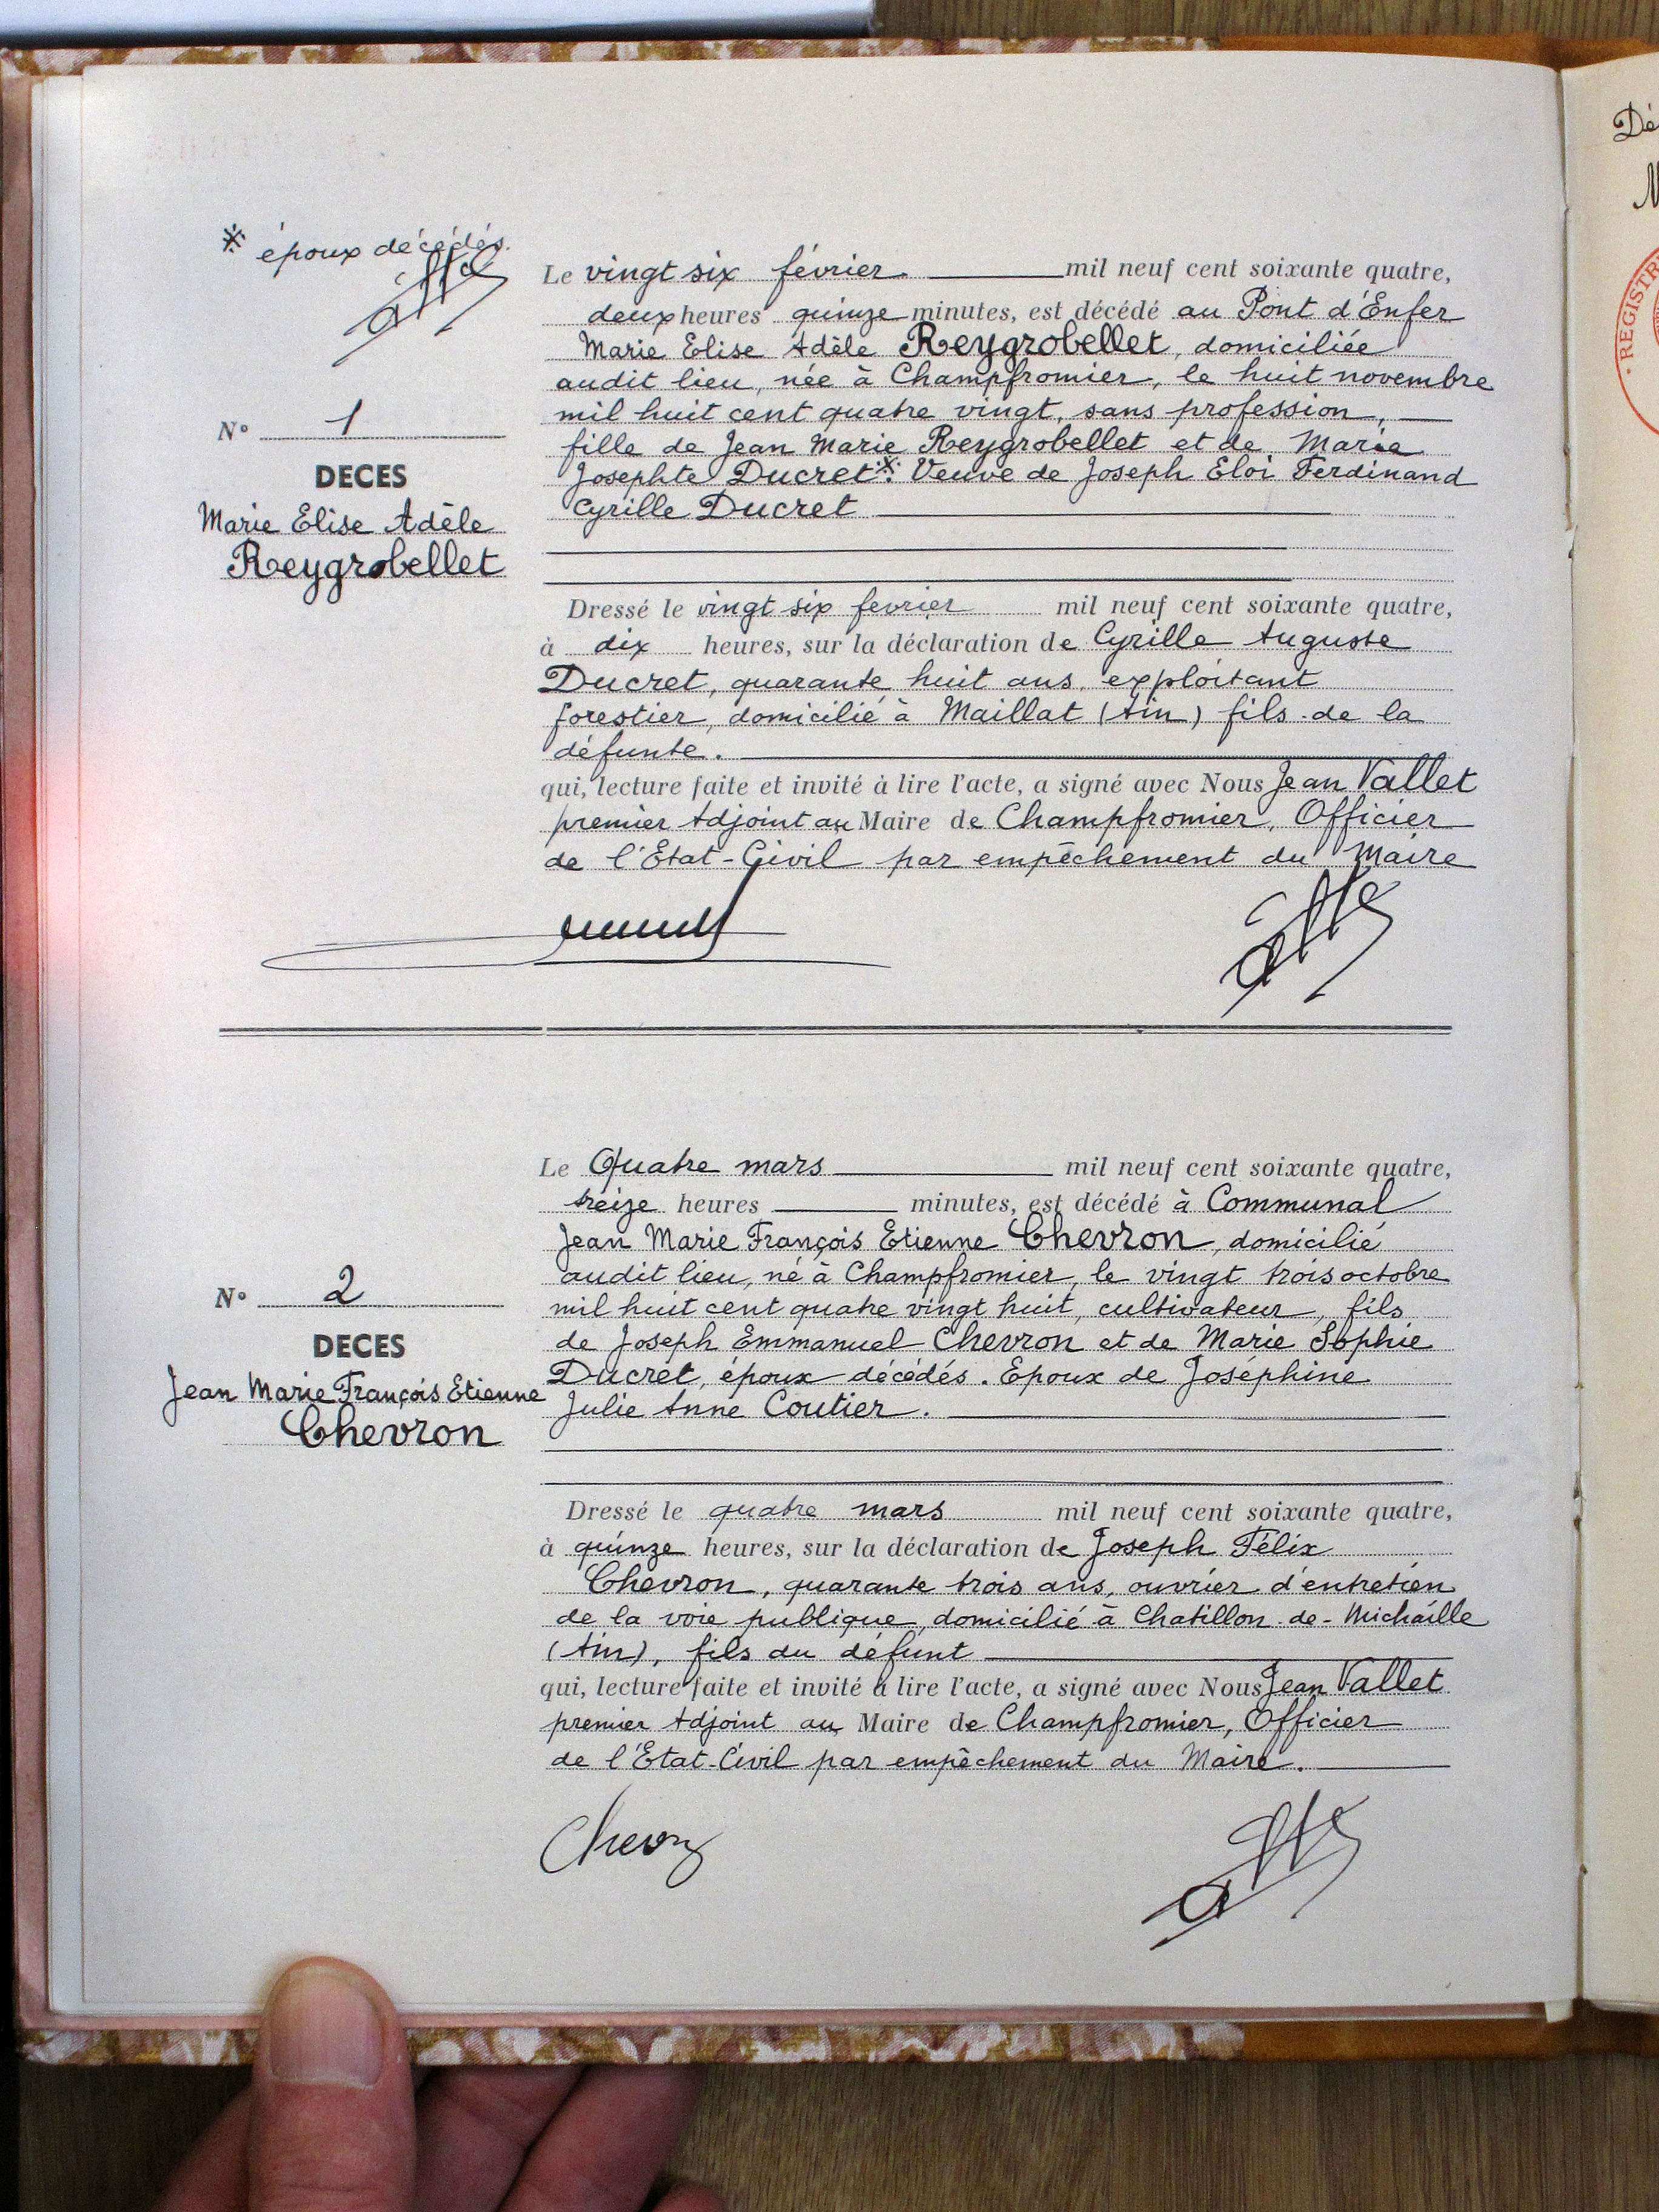 * époux décédés.
Le vingt six février mil neuf cent soixante quatre,
deux heures quinze minutes, est décédé au Pont d'Enfer
Marie Elise Adèle Reygrobellet, domiciliée
audit lieu, née à Champfromier, le huit novembre
mil huit cent quatre vingt, sans profession,
fille de Jean Marie Reygrobellet et de Marie
Josephte Ducret.* Veuve de Joseph Eloi Ferdinand
Cyrille Ducret
N° 1
DECES
Marie Elise Adèle
Reygrobellet
Dressé le vingt six fevrier mil neuf cent soixante quatre,
à dix heures, sur la déclaration de Cyrille Auguste
Ducret, quarante huit ans, exploitant
forestier, domicilié à Maillat (Ain) fils de la
défunte.
qui, lecture faite et invité à lire l'acte, a signé avec Nous Jean Vallet
premier Adjoint au Maire de Champfromier, Officier
de l'Etat-Civil par empêchement du Maire
Le Quatre mars mil neuf cent soixante quatre,
treize heures minutes, est décédé à Communal
Jean Marie François Etienne Chevron, domicilié
audit lieu, né à Champfromier, le vingt trois octobre
mil huit cent quatre vingt huit, cultivateur, fils
de Joseph Emmanuel Chevron et de Marie Sophie
Ducret, époux décédés. Epoux de Joséphine
Julie Anne Coutier.
N° 2
DECES
Jean Marie François Etienne
Chevron
Dressé le quatre mars mil neuf cent soixante quatre,
à quinze heures, sur la déclaration de Joseph Félix
Chevron, quarante trois ans, ouvrier d'entretien
de la voie publique, domicilié à Chatillon-de-Michaille
(Ain), fils du défunt
qui, lecture faite et invité à lire l'acte, a signé avec Nous Jean Vallet
premier Adjoint au Maire de Champfromier, Officier
de l'Etat-Civil par empêchement du Maire.
Chevron
Dé
REGISTR